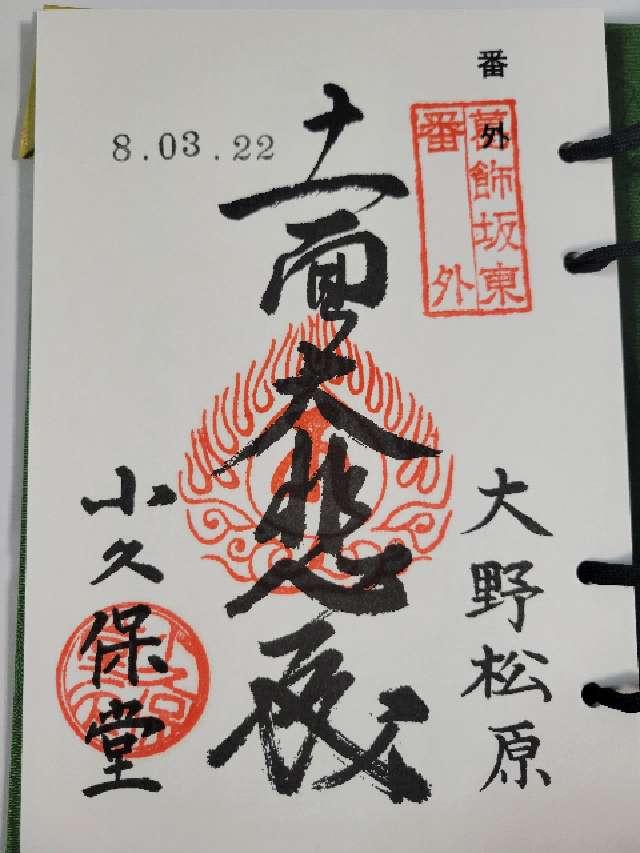 番外
葛飾坂東
番外
大野松原
十一面大悲殿
8.03.22
小久保堂